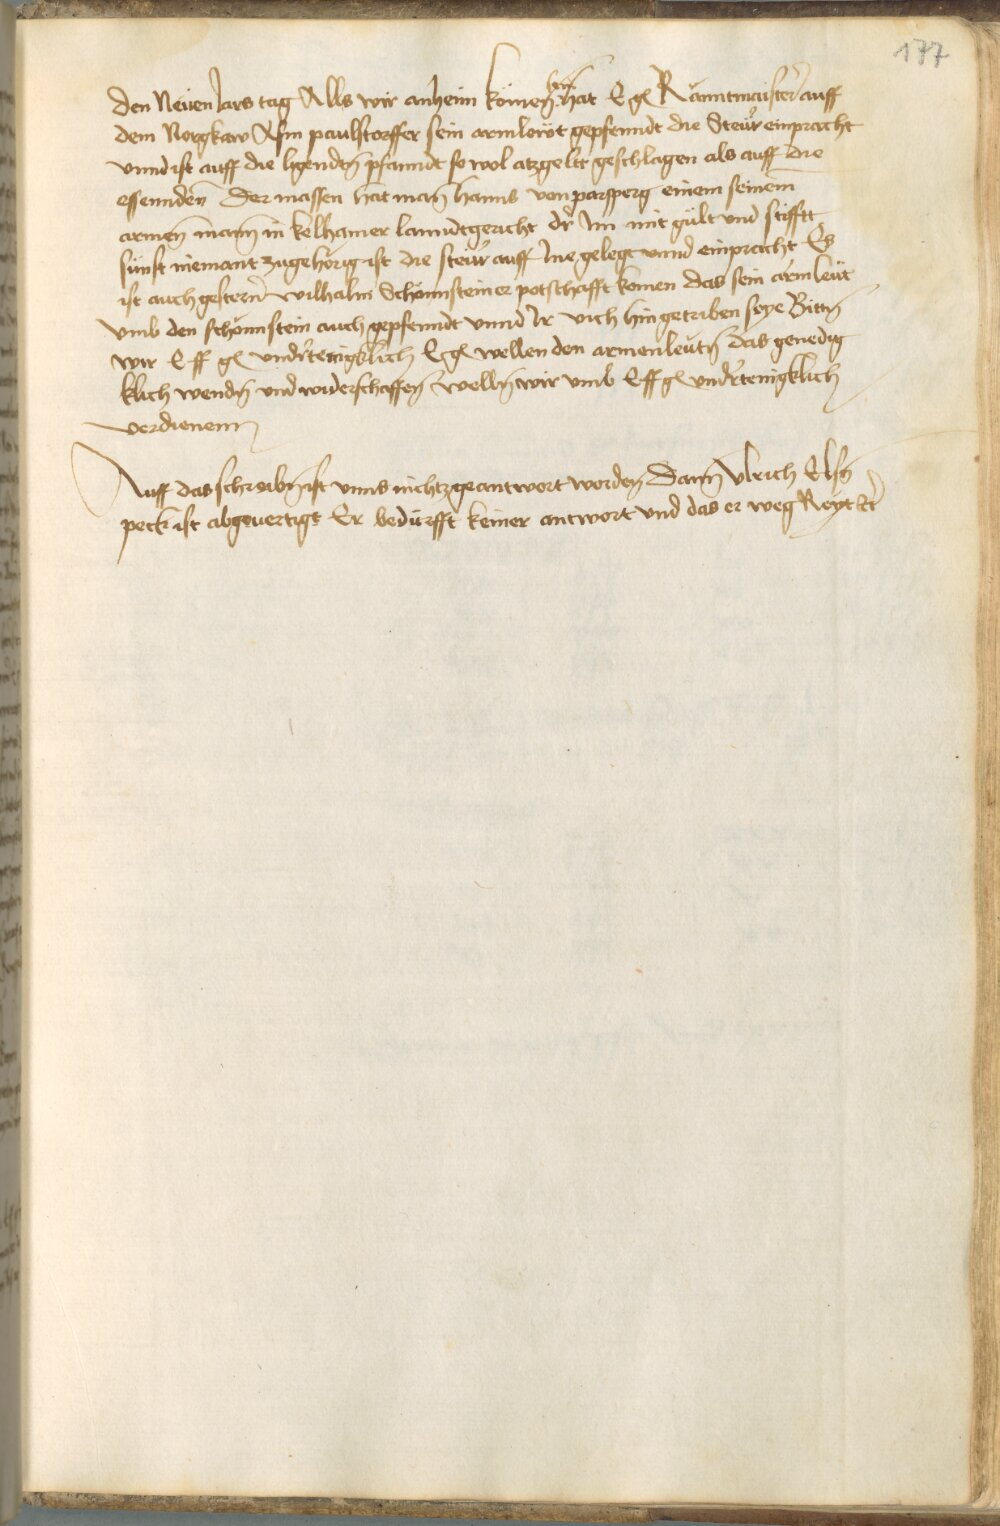 177
den Neuen Jars tag Alls wir anheim komen hat E g Ränntmaister auff
dem Norgkaw Asm paulstorffer sein armlewt gepfenndt die Steur einpracht
vnnd ist auff die ligendn pfanndt so wol atzgelt geschlagen als auff die
essennden Der massen hat man hanns von parsperg einem seinem
armen mann in kelhamer lanndtgericht dr Im mit gült vnd stifft
sünst niemant zugehörig ist die steur auff Ine gelegt vnnd einpracht Es
ist auch gestern wilhalm Schönnsteiner potschafft komen das sein armleut
vmb den schönnstein auch gepfenndt vnnd Ir vich hingetriben seye Bittn
wir E ff g vndrtenigklich E g wellen den armenleutn das genedig
klich wendn vnd widerschaffen welln wir vmb E ff g vndrtenigklich
verdienenn
Auff das schreibn ist vnns nichtz geantwort worden Dann Vlrich Elsn
peck ist abgeuertigt Er bedürfft keiner antwort vnd das er weg Reyt etc